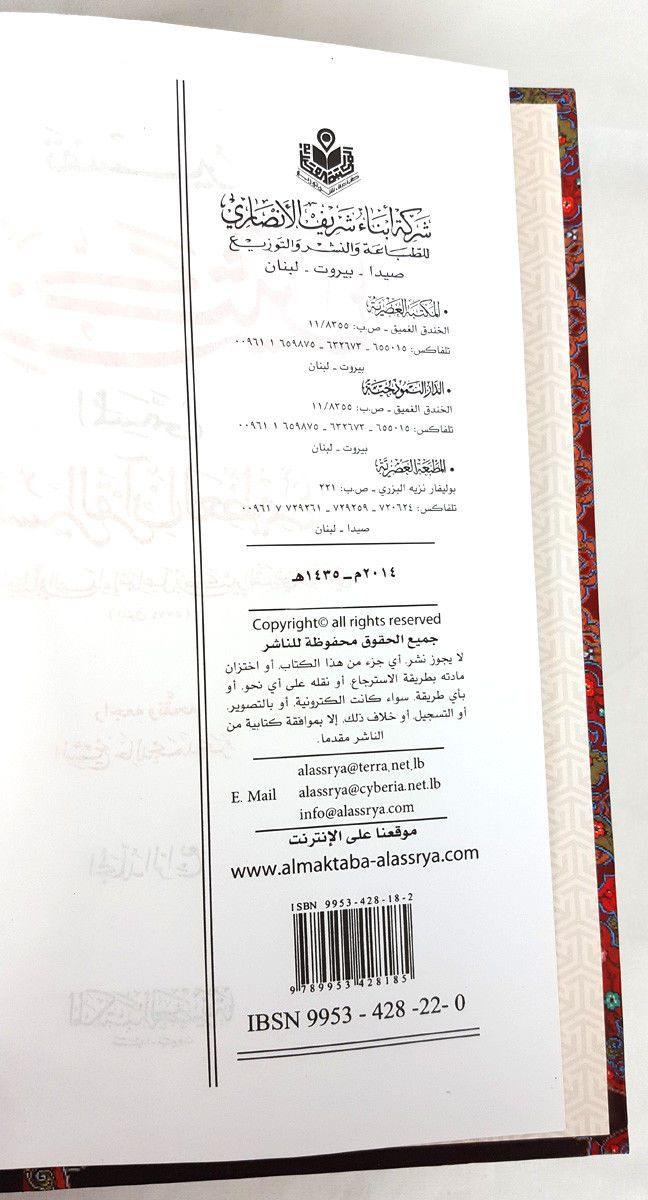 شركة أبناء شريف الأنصاري
للطباعة والنشر والتوزيع
صيدا - بيروت - لبنان
• المكتبة العصرية
الخندق الغميق - ص.ب: ١١/٨٣٥٥
تلفاكس: ٦٥٥٠١٥ - ٦٣٢٦٧٣ - ٦٥٩٨٧٥ ١ ٠٠٩٦١
بيروت - لبنان
• الدار النموذجية
الخندق الغميق - ص.ب: ١١/٨٣٥٥
تلفاكس: ٦٥٥٠١٥ - ٦٣٢٦٧٣ - ٦٥٩٨٧٥ ١ ٠٠٩٦١
بيروت - لبنان
• المطبعة العصرية
بوليفار نزيه البزري - ص.ب: ٢٢١
تلفاكس: ٧٢٠٦٢٤ - ٧٢٩٢٥٩ - ٧٢٩٢٦١ ٧ ٠٠٩٦١
صيدا - لبنان
٢٠١٤م - ١٤٣٥هـ
Copyright© all rights reserved
جميع الحقوق محفوظة للناشر
لا يجوز نشر أي جزء من هذا الكتاب، أو اختزان
مادته بطريقة الاسترجاع، أو نقله على أي نحو، أو
بأي طريقة، سواء كانت الكترونية، أو بالتصوير،
أو التسجيل، أو خلاف ذلك، إلا بموافقة كتابية من
الناشر مقدما.
alassrya@terra.net.lb
E. Mail alassrya@cyberia.net.lb
info@alassrya.com
موقعنا على الإنترنت
www.almaktaba-alassrya.com
ISBN 9953-428-18-2
9 789953 428185
IBSN 9953 - 428 -22- 0